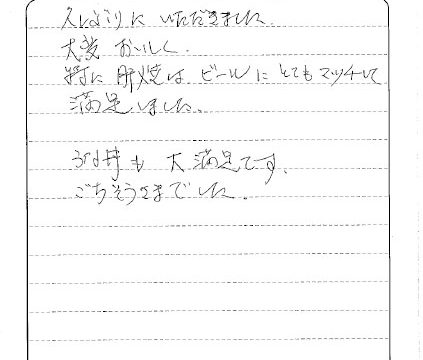 久しぶりに いただきました.
大変 おいしく.
特に 肝焼は ビールに とてもマッチして
満足しました.
うな丼も 大満足です.
ごちそうさまでした.